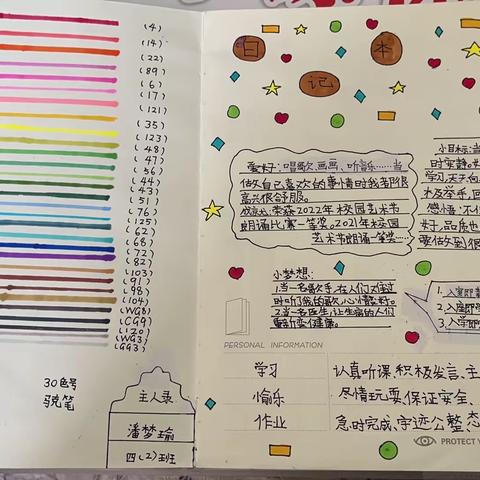 (4)
(14)
(22)
(89)
(6)
(17)
(121)
(35)
(123)
(48)
(47)
(56)
(44)
(43)
(51)
(76)
(125)
(62)
(68)
(72)
(82)
(103)
(91)
(98)
(104)
(WG8)
(CG9)
(120)
(WG3)
(GG3)
30色号
马克笔
主人录
潘梦瑜
四(2)班
日
记
本
爱好:唱歌、画画、听音乐……当
做自己喜欢的事情时我都很
高兴很舒服。
荣获2022年校园艺术节
朗诵比赛一等奖。2021年校园
艺术节朗诵一等奖……
小目标:当
时安静。
学习,天天向
极举手,回
感悟:不仅
好,品质也
要做到很
小梦想:
1.当一名歌手,在人们不开心
时听了我的歌,心情变好。
2.当一名医生,让生病的人们
重新变健康。
1.入室即
2.入座即
3.入学即
PERSONAL INFORMATION
学习
认真听课,积极发言、主
愉乐
尽情玩耍,保证安全、
作业
急时完成,字迹公整态
PROTECT Y